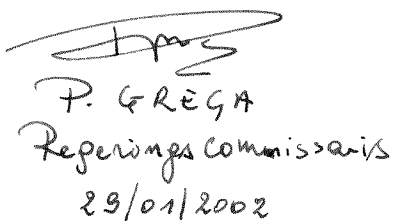 P. GREGA
Regeringscommissaris
29/01/2002